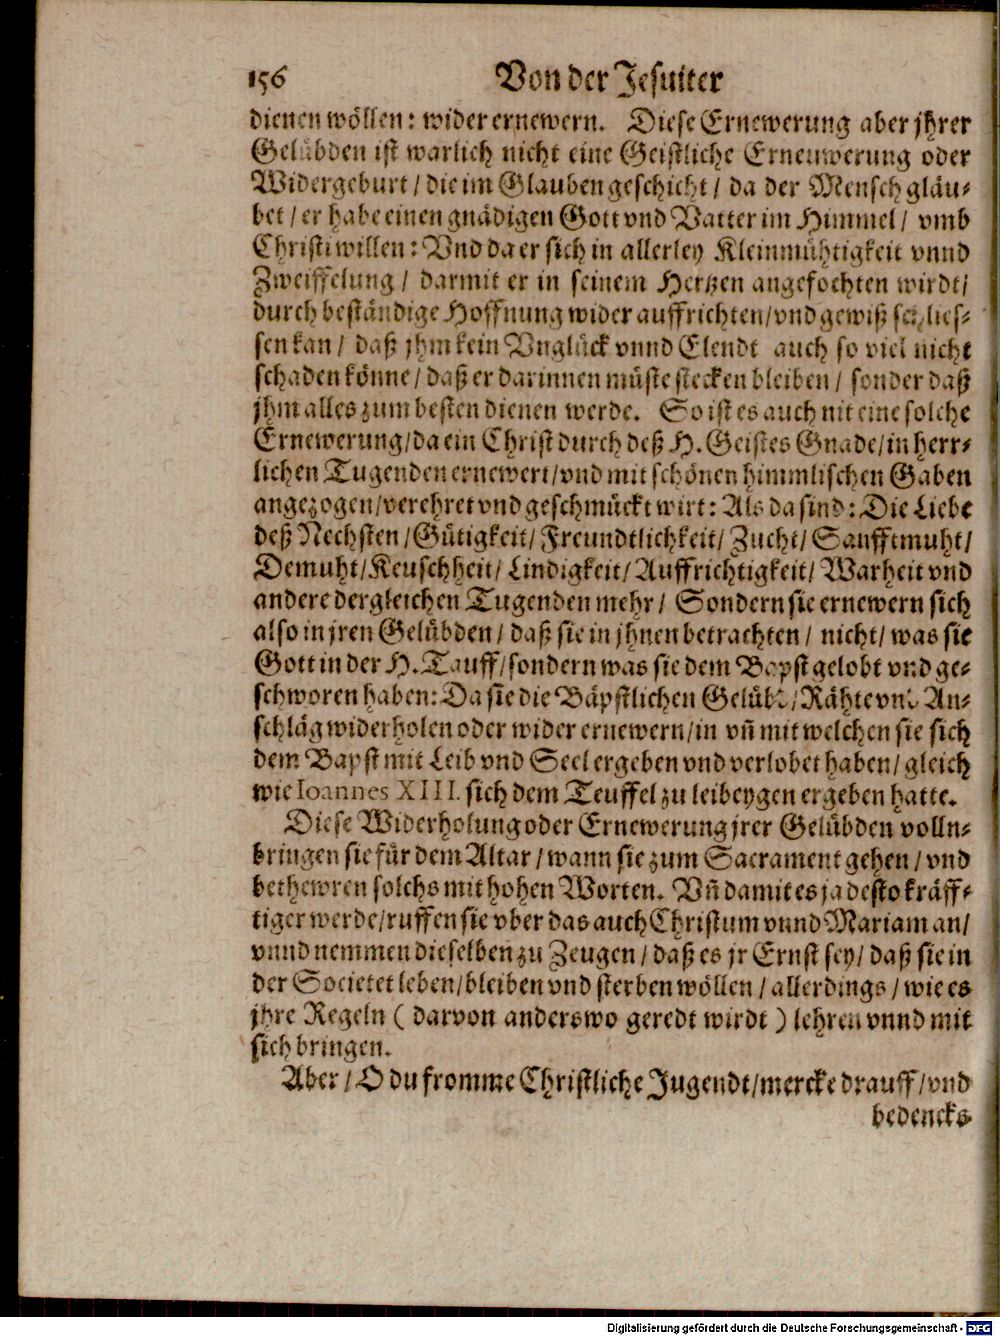 156 Von der Jesuiter
dienen wöllen: wider ernewern. Diese Ernewerung aber jhrer
Gelübden ist warlich nicht eine Geistliche Erneuwerung oder
Widergeburt / die im Glauben geschicht / da der Mensch gläu-
bet / er habe einen gnädigen Gott vnd Vatter im Himmel / vmb
Christi willen: Vnd da er sich in allerley Kleinmühtigkeit vnnd
Zweiffelung / darmit er in seinem Hertzen angefochten wirdt /
durch beständige Hoffnung wider auffrichten / vnd gewiß schlies-
sen kan / daß jhm kein Vnglück vnnd Elendt auch so viel nicht
schaden könne / daß er darinnen müste stecken bleiben / sonder daß
jhm alles zum besten dienen werde. So ist es auch nit eine solche
Ernewerung / da ein Christ durch deß H. Geistes Gnade / in herr-
lichen Tugenden ernewert / vnd mit schönen himmlischen Gaben
angezogen / verehret vnd geschmückt wirt: Als da sind: Die Liebe
deß Nechsten / Gütigkeit / Freundtlichkeit / Zucht / Sanfftmuht /
Demuht / Keuschheit / Lindigkeit / Auffrichtigkeit / Warheit vnd
andere dergleichen Tugenden mehr / Sondern sie ernewern sich
also in jren Gelübden / daß sie in jhnen betrachten / nicht / was sie
Gott in der H. Tauff / sondern was sie dem Bapst gelobt vnd ge-
schworen haben: Da sie die Bäpstlichen Gelübd / Rähte vnd An-
schläg widerholen oder wider ernewern / in vñ mit welchen sie sich
dem Bapst mit Leib vnd Seel ergeben vnd verlobet haben / gleich
wie Ioannes XIII. sich dem Teuffel zu leibeygen ergeben hatte.
Diese Widerholung oder Ernewerung jrer Gelübden volln-
bringen sie für dem Altar / wann sie zum Sacrament gehen / vnd
bethewren solchs mit hohen Worten. Vñ damit es ja desto kräff-
tiger werde / ruffen sie vber das auch Christum vnnd Mariam an /
vnnd nemmen dieselben zu Zeugen / daß es jr Ernst sey / daß sie in
der Societet leben / bleiben vnd sterben wöllen / allerdings / wie es
jhre Regeln ( darvon anderswo geredt wirdt ) lehren vnnd mit
sich bringen.
Aber / O du fromme Christliche Jugendt / mercke drauff / vnd
bedencks
Digitalisierung gefördert durch die Deutsche Forschungsgemeinschaft - DFG